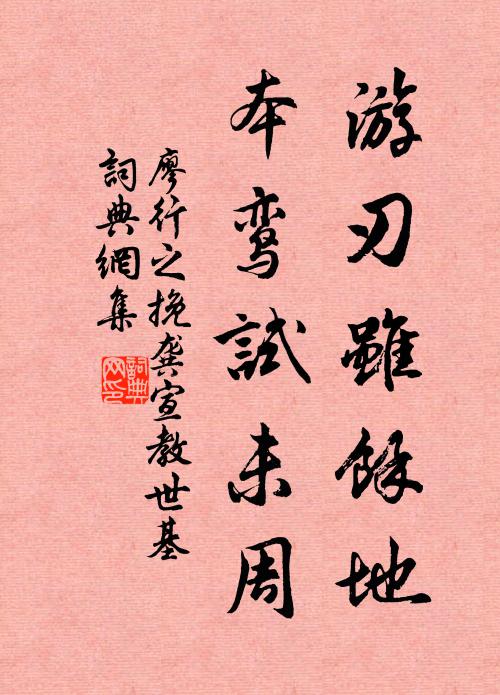 游刃雖餘地
本鸾試未周
廖行之挽龔宣教世基
詞典網集
詞典網印